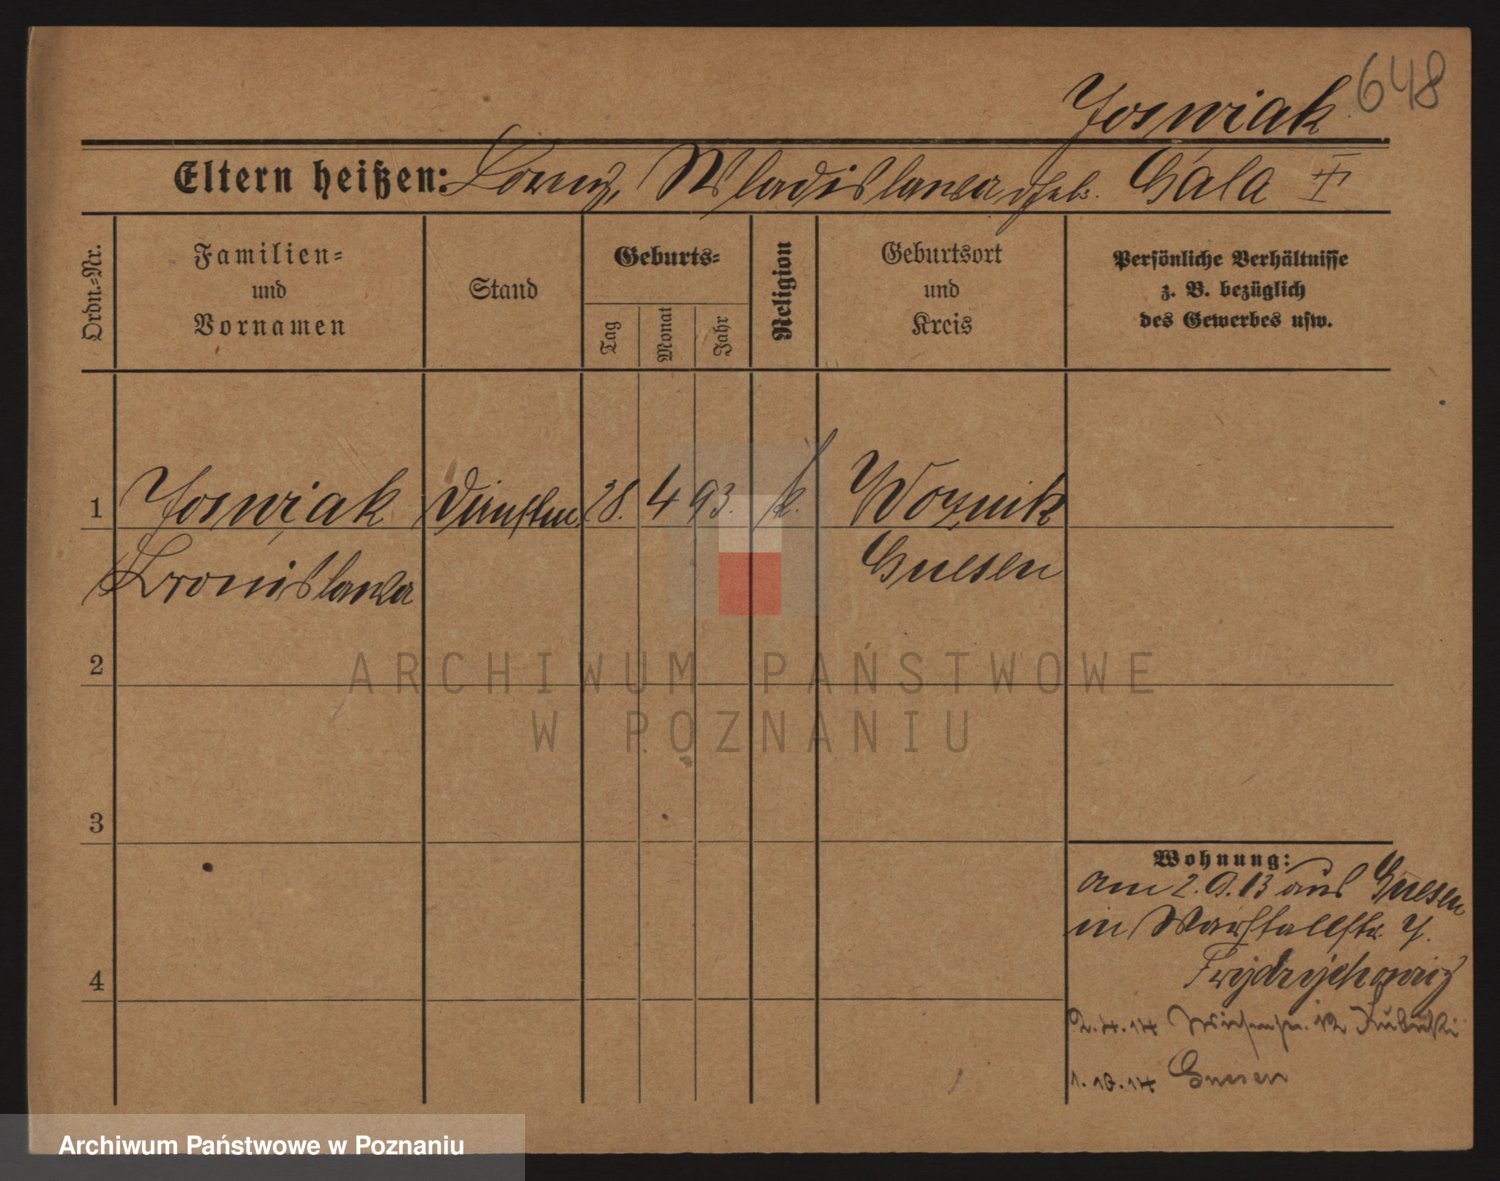 648
Joswiak
Eltern heißen: Lorenz, Wladislawa geb. Gala
Ordn.-Nr.
Familien-
und
Vornamen
Stand
Geburts-
Tag
Monat
Jahr
Religion
Geburtsort
und
Kreis
Persönliche Verhältnisse
z. B. bezüglich
des Gewerbes usw.
1 Joswiak 28. 4 93. k. Woznik
Bronislawa Gnesen
2
ARCHIWUM PAŃSTWOWE
W POZNANIU
3
Wohnung:
am 2.9.13 aus Gnesen
in Marstallstr. 7.
Frydrychowicz
2.4.14
1.10.14 Gnesen
4
Archiwum Państwowe w Poznaniu